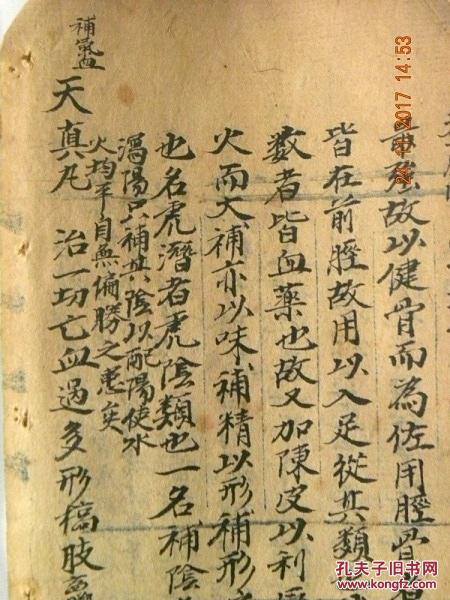 最強故以健骨而為佐用脛骨者
皆在前脛故用以入足從其類
数者皆血藥也故又加陳皮以利
火而大補亦以味補精以形補形
也名虎潛者虎陰類也一名補陰
瀉陽只補其陰以配陽使水
火均平自無偏勝之患矣
補氣血
天真丸 治一切亡血過多形槁肢
2017 14:53
孔夫子旧书网
www.kongfz.com